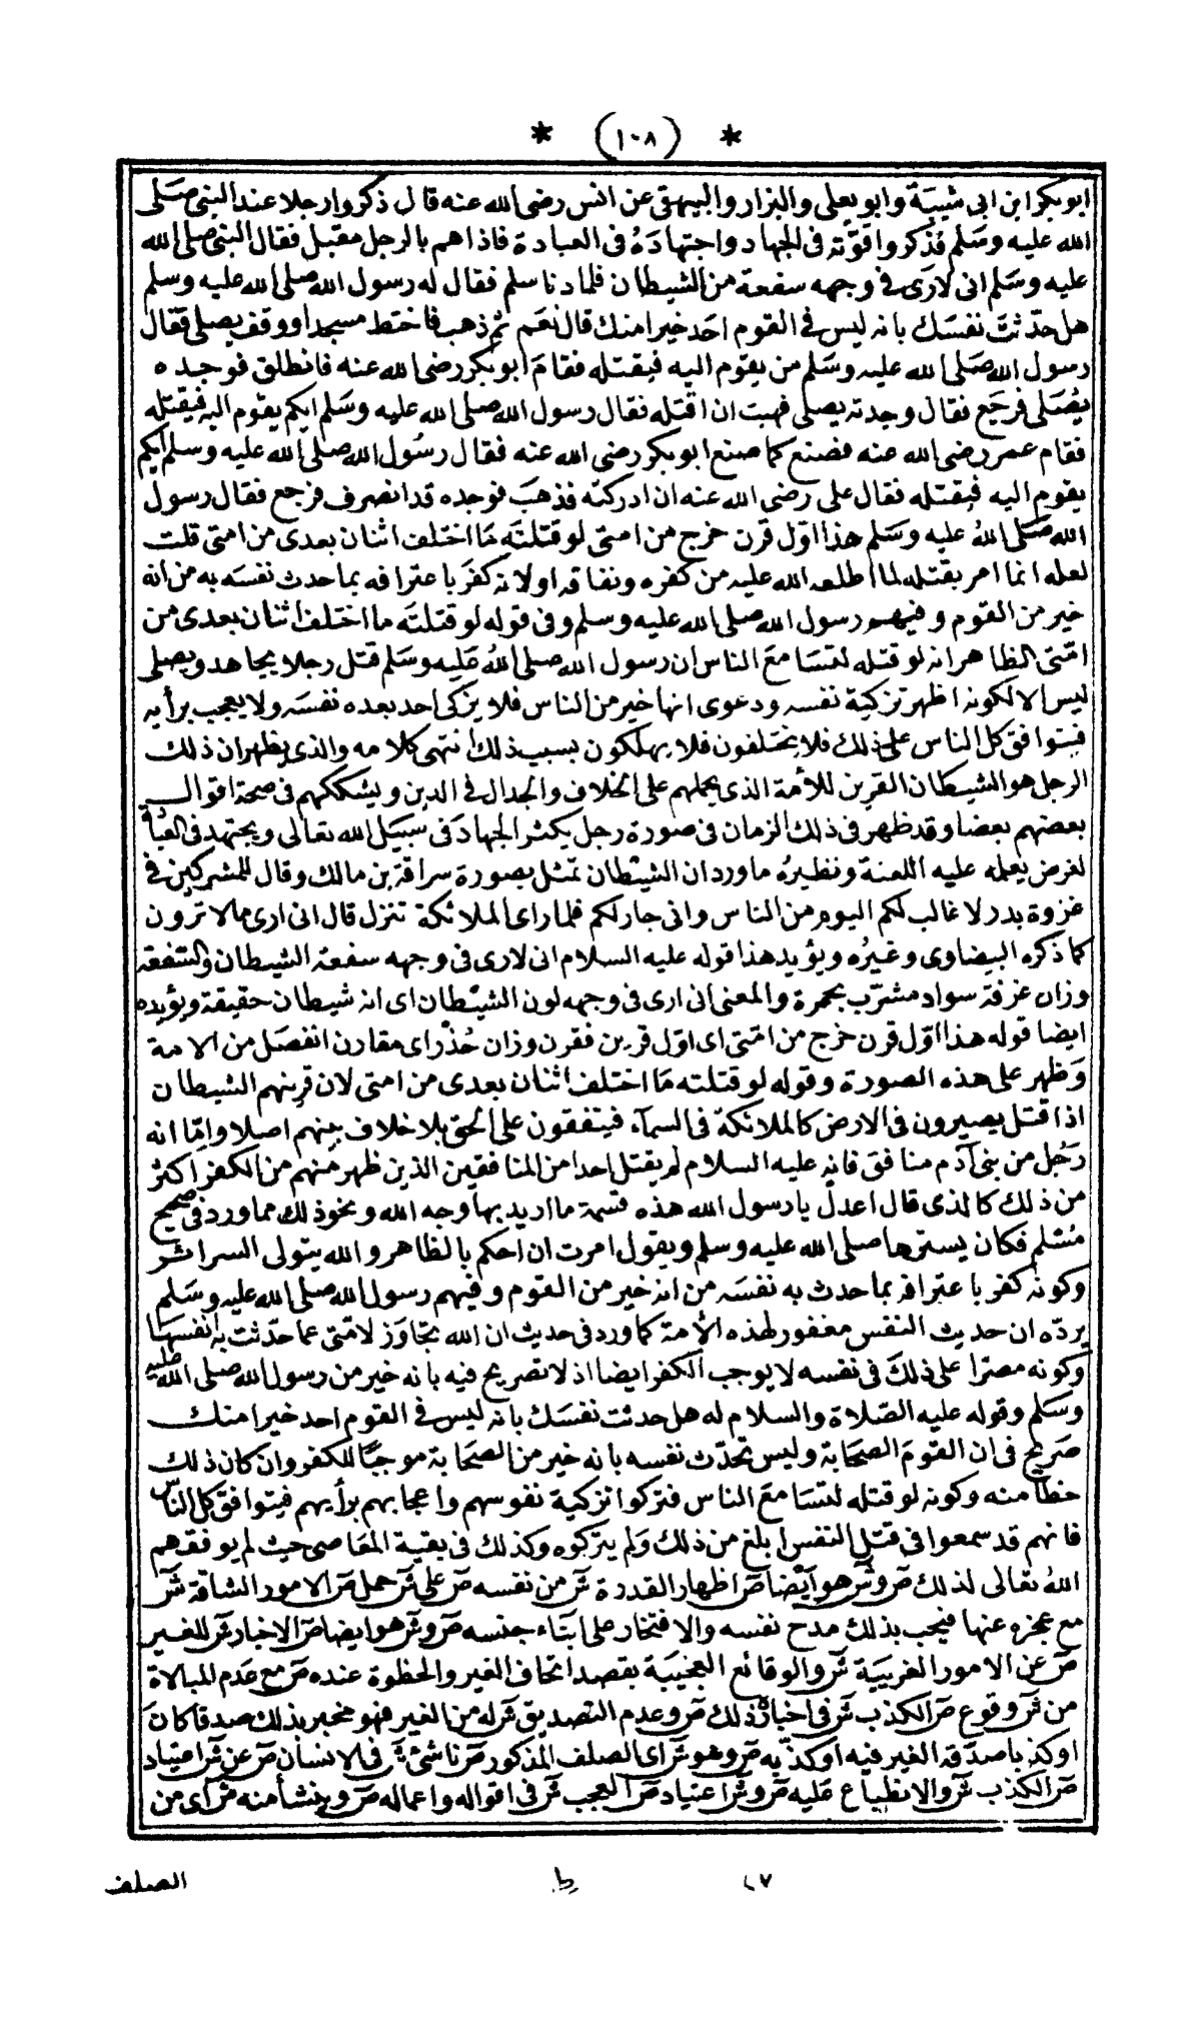 * (١٠٨) *
ابو بكر ابن ابى شيبة وابو يعلى والبزار والبيهقى عن انس رضى الله عنه قال ذكروا رجلا عند النبى صلى
الله عليه وسلم فذكروا قوّته فى الجهاد واجتهاده فى العبادة فاذا هم بالرجل مقبل فقال النبى صلى الله
عليه وسلم انى لارى فى وجهه سفعة من الشيطان فلما دنا سلم فقال له رسول الله صلى الله عليه وسلم
هل حدّثت نفسك بانه ليس فى القوم احد خيرا منك قال نعم ثم ذهب فاختط مسجدا ووقف يصلى فقال
رسول الله صلى الله عليه وسلم من يقوم اليه فيقتله فقام ابو بكر رضى الله عنه فانطلق فوجده
يصلى فرجع فقال وجدته يصلى فهبت ان اقتله فقال رسول الله صلى الله عليه وسلم ايكم يقوم اليه فيقتله
فقام عمر رضى الله عنه فصنع كما صنع ابو بكر رضى الله عنه فقال رسول الله صلى الله عليه وسلم ايكم
يقوم اليه فيقتله فقال على رضى الله عنه ان ادركته فذهب فوجده قد انصرف فرجع فقال رسول
الله صلى الله عليه وسلم هذا اوّل قرن خرج من امتى لو قتلته ما اختلف اثنان بعدى من امتى قلت
لعله انما امر بقتله لما اطلعه الله عليه من كفره ونفاقه او لانه كفر باعترافه بما حدث نفسه به من انه
خير من القوم وفيهم رسول الله صلى الله عليه وسلم وفى قوله لو قتلته ما اختلف اثنان بعدى من
امّتى الظاهر انه لو قتله لتسامع الناس ان رسول الله صلى الله عليه وسلم قتل رجلا يجاهد ويصلى
ليس الا لكونه اظهر تزكية نفسه ودعوى انها خير من الناس فلا يزكى احد بعده نفسه ولا يعجب برأيه
فيتوافق كل الناس على ذلك فلا يختلفون فلا يهلكون بسبب ذلك انتهى كلامه والذى يظهر ان ذلك
الرجل هو الشيطان القرين للأمة الذى يحملهم على الخلاف والجدال فى الدين ويشككهم فى صحة اقوال
بعضهم بعضا وقد ظهر فى ذلك الزمان فى صورة رجل يكثر الجهاد فى سبيل الله تعالى ويجتهد فى العبادة
لغرض يعمله عليه اللعنة ونظيره ما ورد ان الشيطان تمثل بصورة سراقة بن مالك وقال للمشركين فى
غزوة بدر لا غالب لكم اليوم من الناس وانى جار لكم فلما راى الملائكة تنزل قال انى ارى ما لا ترون
كما ذكره البيضاوى وغيره ويؤيد هذا قوله عليه السلام انى لارى فى وجهه سفعة الشيطان والسفعة
وزان غرفة سواد مشرّب بحمرة والمعنى انى ارى فى وجهه لون الشيطان اى انه شيطان حقيقة ويؤيده
ايضا قوله هذا اوّل قرن خرج من امّتى اى اوّل قرين فقرن وزان حُذر اى مقارن انفصل من الامة
وظهر على هذه الصورة وقوله لو قتلته ما اختلف اثنان بعدى من امتى لان قرينهم الشيطان
اذا قتل يصيرون فى الارض كالملائكة فى السماء فيتفقون على الحق بلا خلاف بينهم اصلا وامّا انه
رجل من بنى آدم منافق فانه عليه السلام لم يقتل احدا من المنافقين الذين ظهر منهم من الكفر اكثر
من ذلك كالذى قال اعدل يا رسول الله هذه قسمة ما اريد بها وجه الله ونحو ذلك مما ورد فى صحيح
مسلم فكان يسترها صلى الله عليه وسلم ويقول امرت ان احكم بالظاهر والله يتولى السرائر
وكونه كفر باعترافه بما حدث به نفسه من انه خير من القوم وفيهم رسول الله صلى الله عليه وسلم
يردّه ان حديث النفس مغفور لهذه الأمة كما ورد فى حديث ان الله تجاوز لامّتى عما حدّثت به انفسها
وكونه مصرّا على ذلك فى نفسه لا يوجب الكفر ايضا اذ لا تصريح فيه بانه خير من رسول الله صلى الله عليه
وسلم وقوله عليه الصّلاة والسلام له هل حدثت نفسك بانه ليس فى القوم احد خيرا منك
صريح فى ان القوم الصحابة وليس تحدّث نفسه بانه خير من الصحابة موجبًا للكفر وان كان ذلك
خطأ منه وكونه لو قتله لتسامع الناس فتركوا تزكية نفوسهم واعجابهم برأيهم فيتوافق كل الناس
فانهم قد سمعوا فى قتل النفس ابلغ من ذلك ولم يتركوه وكذلك فى بقية المعاصى حيث لم يوفقهم
الله تعالى لذلك ص وش هو ايضا ص اظهار القدرة ش من نفسه ص على ش حمل ص الامور الشاقة ش
مع عجزه عنها فيجب بذلك مدح نفسه والافتخار على ابناء جنسه ص وش هو ايضا ص الاخبار ش للغير
ص عن الامور الغريبة ش والوقائع العجيبة بقصد اتحاف الغير والحظوة عنده ص مع عدم المبالاة
من ش وقوع ص الكذب ش فى اخباره ذلك ص وعدم التصديق ش له من الغير فهو مخبر بذلك صدقا كان
او كذبا صدّقه الغير فيه او كذّبه ص وهو ش اى الصلف المذكور ص ناشئ ش فى الانسان ص عن ش اعتياد
ص الكذب ش والانطباع عليه ص وش اعتياد ص العجب ش فى اقواله واعماله ص وينشأ منه ش اى من
٢٧
ط
الصلف